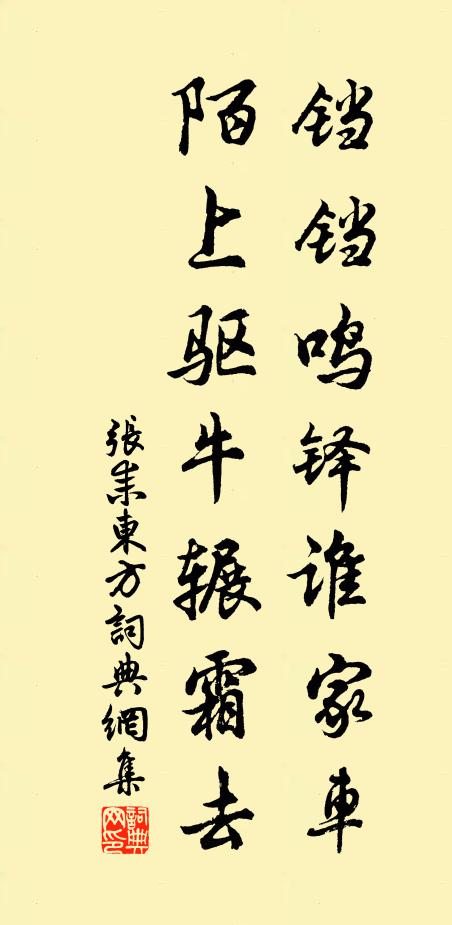 铛铛鸣铎谁家車
陌上驱牛辗霜去
張耒東方詞典網集
詞典网印